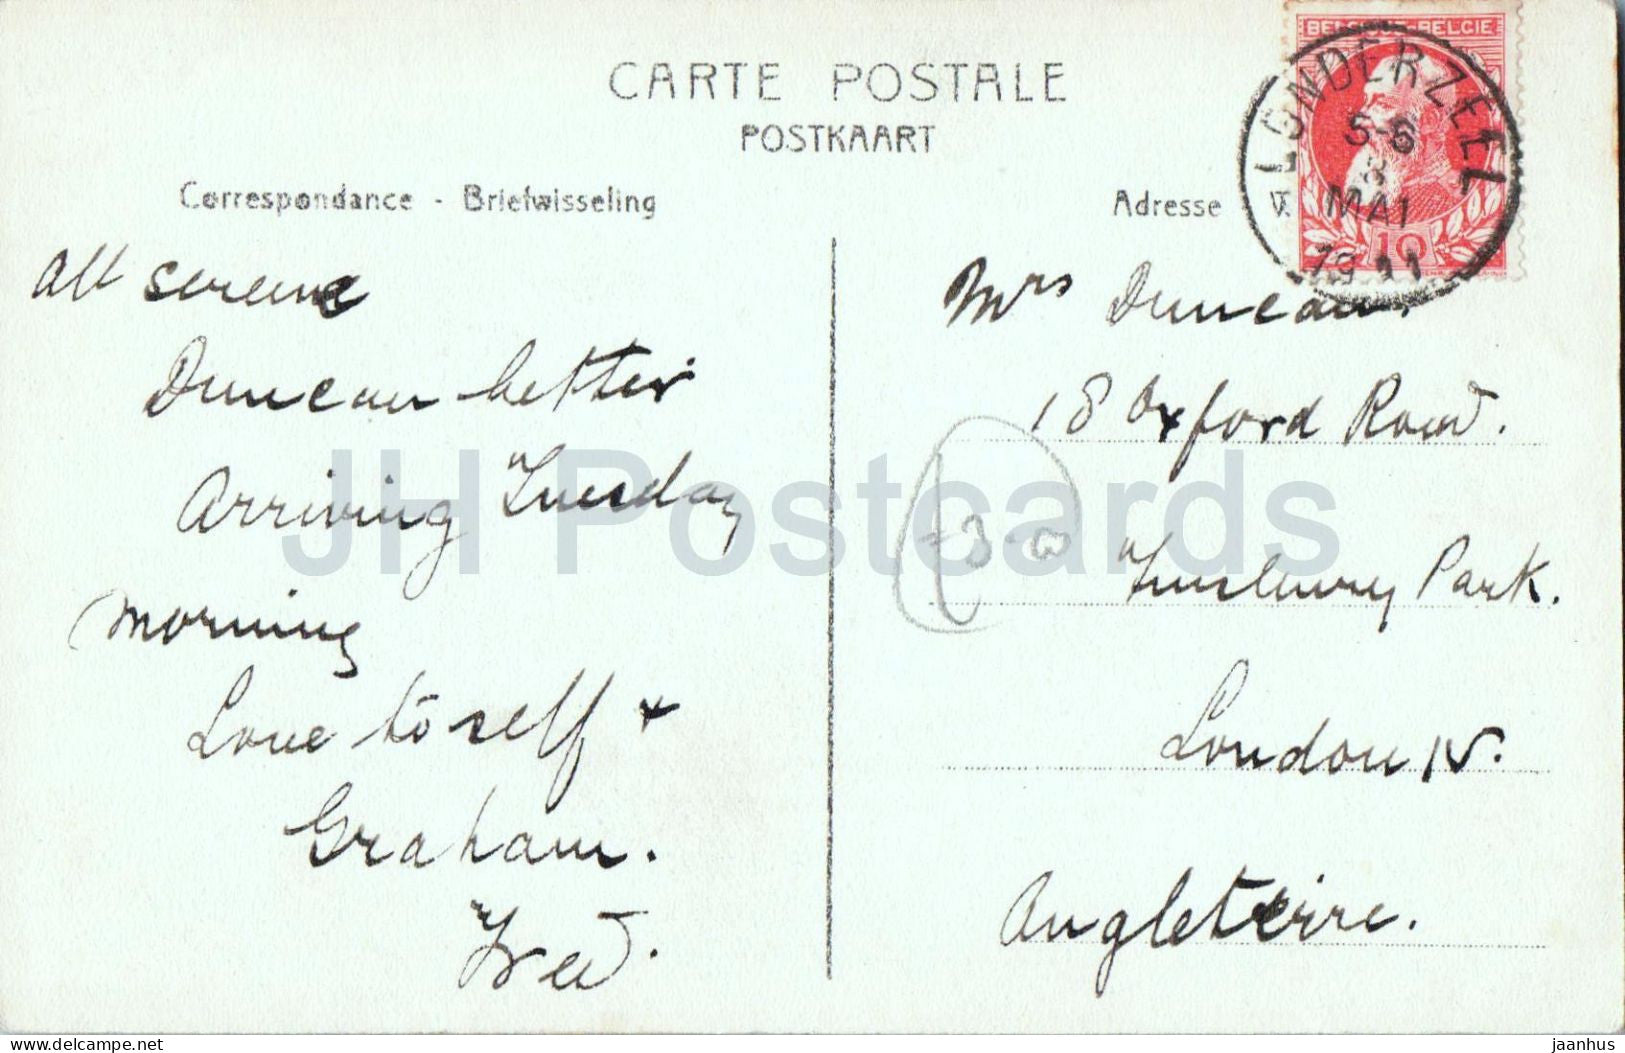 CARTE POSTALE
POSTKAART
Correspondance - Briefwisseling
Adresse
BELGIQUE-BELGIE
LONDERZEEL
5-6
8
MAI
1911
10
All serene
Duncan better
Arriving Tuesday
morning
Love to self +
Graham.
Fred.
Mrs Duncan.
18 Oxford Road.
Finsbury Park.
London N.
Angleterre.
JH Postcards
delcampe.net
jaanhus